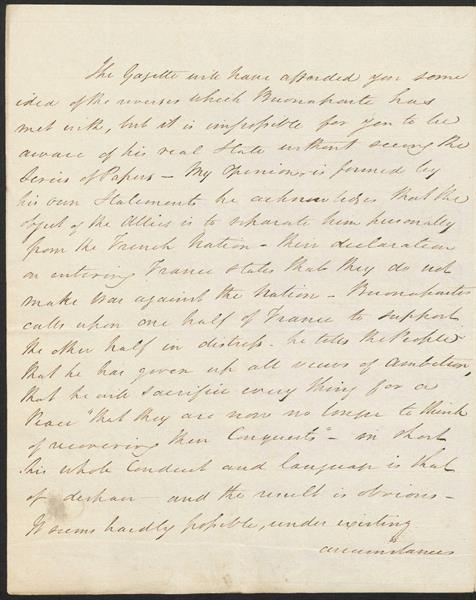 The Gazette will have afforded you some
idea of the reverses which Buonaparte has
met with, but it is impossible for you to be
aware of his real State without seeing the
Series of Papers – My Opinion is formed by
his own Statements he acknowledges that the
object of the Allies is to separate him personally
from the French Nation – their declaration
on entering France states that they do not
make War against the Nation – Buonaparte
calls upon one half of France to support
the other half in distress. he tells the People
that he has given up all views of Ambition,
that he will sacrifice every thing for a
Peace "that they are now no longer to think
of recovering their Conquests" – in short
his whole Conduct and language is that
of despair – and the result is obvious –
It seems hardly possible, under existing
circumstances